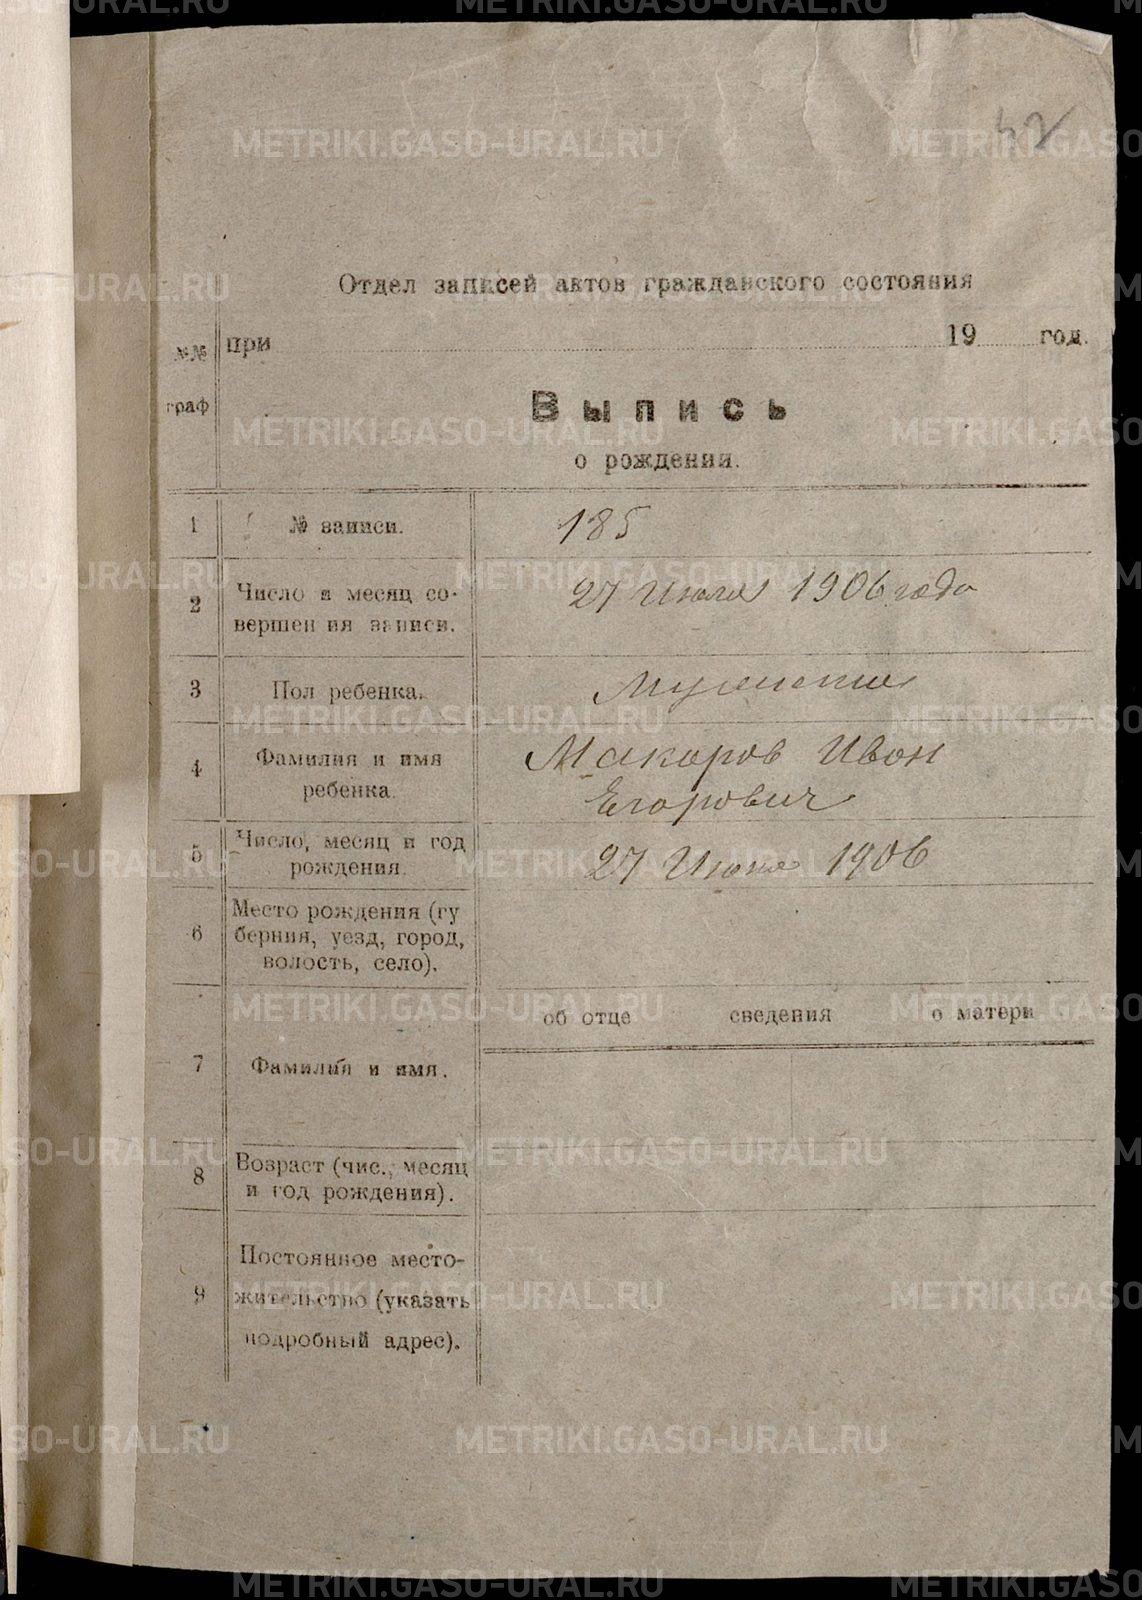 42
Отдел записей актов гражданского состояния
при 19 год.
№№
граф
Выпись
о рождении.
1 № записи. 185
2 Число и месяц со-
вершения записи. 27 Июля 1906 года
3 Пол ребенка.
4 Фамилия и имя
ребенка. Макоров Ивон
Егорович
5 Число, месяц и год
рождения. 27 Июня 1906
6 Место рождения (гу
берния, уезд, город,
волость, село).
об отце сведения о матери
7 Фамилия и имя.
8 Возраст (чис., месяц
и год рождения).
9 Постоянное место-
жительство (указать
подробный адрес).
METRIKI.GASO-URAL.RU